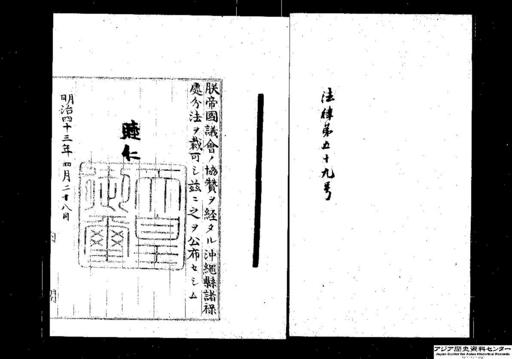 法律第五十九号
朕帝國議會ノ協贊ヲ経タル沖繩縣諸禄
處分法ヲ裁可シ茲ニ之ヲ公布セシム
睦仁
天皇御璽
明治四十三年四月二十八日
内閣
アジア歴史資料センター
Japan Center for Asian Historical Records